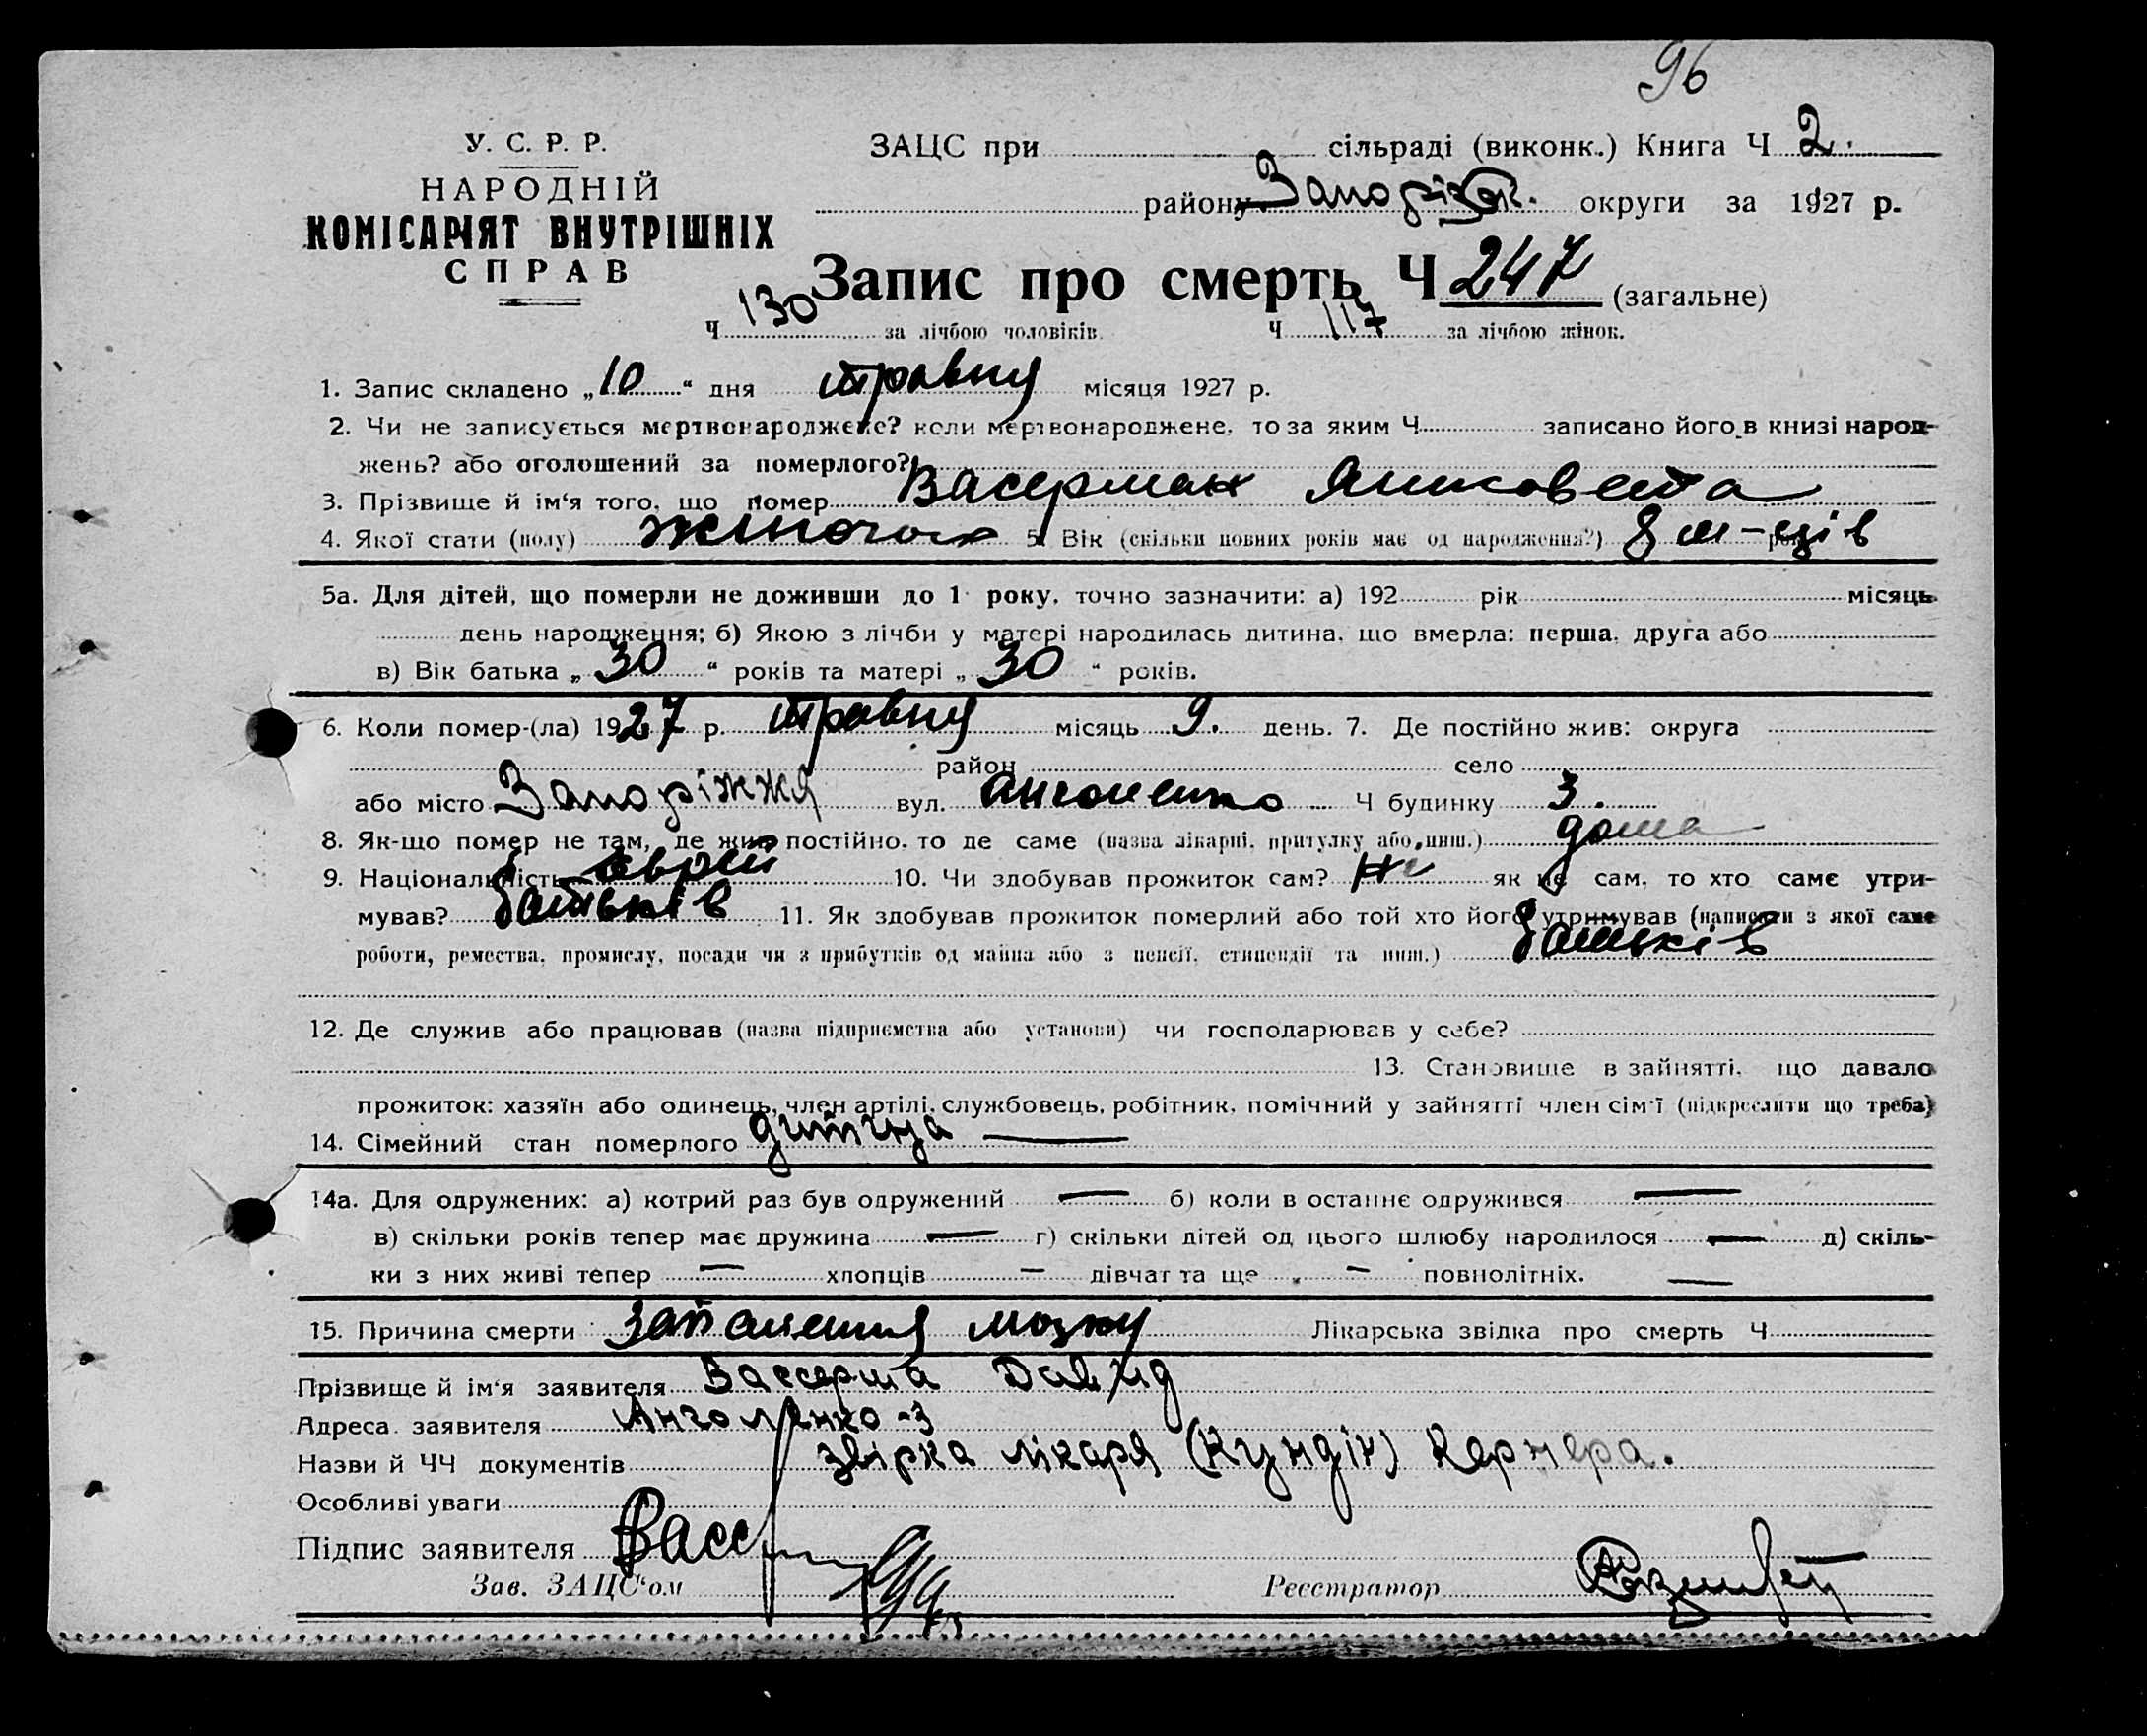 96
У. С. Р. Р.
НАРОДНІЙ
КОМІСАРІЯТ ВНУТРІШНІХ
СПРАВ
ЗАЦС при сільраді (виконк.) Книга Ч 2.
району Запоріж. округи за 1927 р.
Запис про смерть Ч 247 (загальне)
Ч 130 за лічбою чоловіків. Ч 117 за лічбою жінок.
1. Запис складено „10“ дня травня місяця 1927 р.
2. Чи не записується мертвонароджене? коли мертвонароджене, то за яким Ч записано його в книзі народ-
жень? або оголошений за померлого?
3. Прізвище й ім‘я того, що помер Васерман
4. Якої стати (полу) жіночої 5. Вік (скільки повних років має од народження?) 8 м-ців
5а. Для дітей, що померли не доживши до 1 року, точно зазначити: а) 192 рік місяць
день народження; б) Якою з лічби у матері народилась дитина, що вмерла: перша, друга або
в) Вік батька „30“ років та матері „30“ років.
6. Коли помер-(ла) 1927 р. травня місяць 9. день. 7. Де постійно жив: округа
район село
або місто Запоріжжя вул. Анголенко Ч будинку 3.
8. Як-що помер не там, де жив постійно, то де саме (назва лікарні, притулку або инш.) дома
9. Національність єврей 10. Чи здобував прожиток сам? Ні як не сам, то хто самє утри-
мував? батьків 11. Як здобував прожиток померлий або той хто його утримував (написати з якої саме
роботи, ремества, промислу, посади чи з прибутків од майна або з пенсії, стипендії та инш.) батьків
12. Де служив або працював (назва підприємства або установи) чи господарював у себе?
13. Становище в зайнятті, що давало
прожиток: хазяїн або одинець, член артілі, службовець, робітник, помічний у зайнятті член сім‘ї (підкреслити що треба)
14. Сімейний стан померлого дитина —
14а. Для одружених: а) котрий раз був одружений — б) коли в останнє одружився —
в) скільки років тепер має дружина — г) скільки дітей од цього шлюбу народилося — д) скіль-
ки з них живі тепер — хлопців — дівчат та ще — повнолітніх. —
15. Причина смерти запалення мозку Лікарська звідка про смерть Ч
Прізвище й ім‘я заявителя Вассерма Давид
Адреса заявителя Анголенко-3
Назви й ЧЧ документів звірка лікаря (Кундін) Кернера.
Особливі уваги
Підпис заявителя Васс
Зав. ЗАЦС‘ом Реєстратор